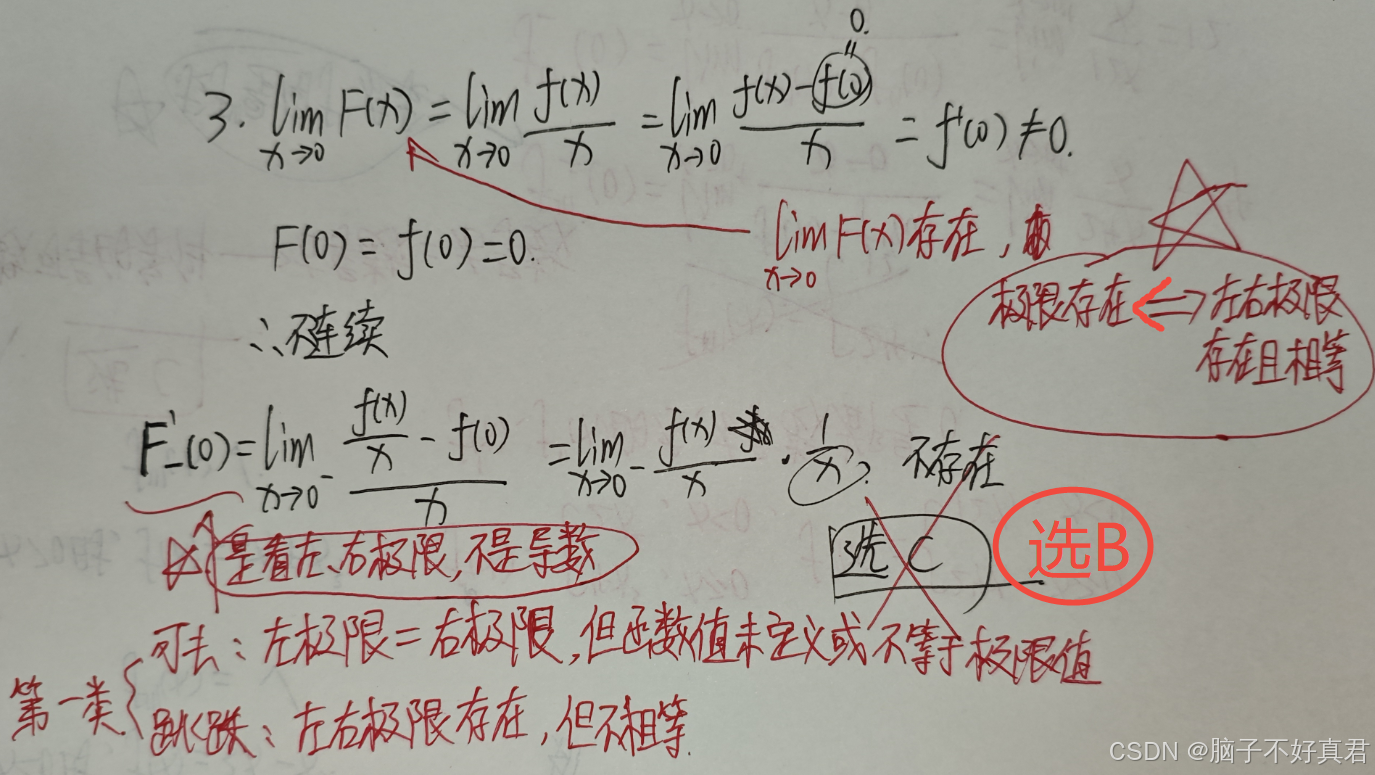 3. lim x→0 F(x) = lim x→0 f(x)/x = lim x→0 (f(x)-f(0))/x = f'(0) ≠ 0.
0.
lim x→0 F(x)存在,
F(0) = f(0) = 0.
极限存在 <=> 左右极限
存在且相等
∴不连续
F'₋(0) = lim x→0⁻ (f(x)/x - f(0))/x = lim x→0⁻ f(x)/x · 1/x, 不存在
是看左、右极限,不是导数
选 C
选B
第一类
可去:左极限=右极限,但函数值未定义或不等于极限值
跳跌:左右极限存在,但不相等.
CSDN @脑子不好真君